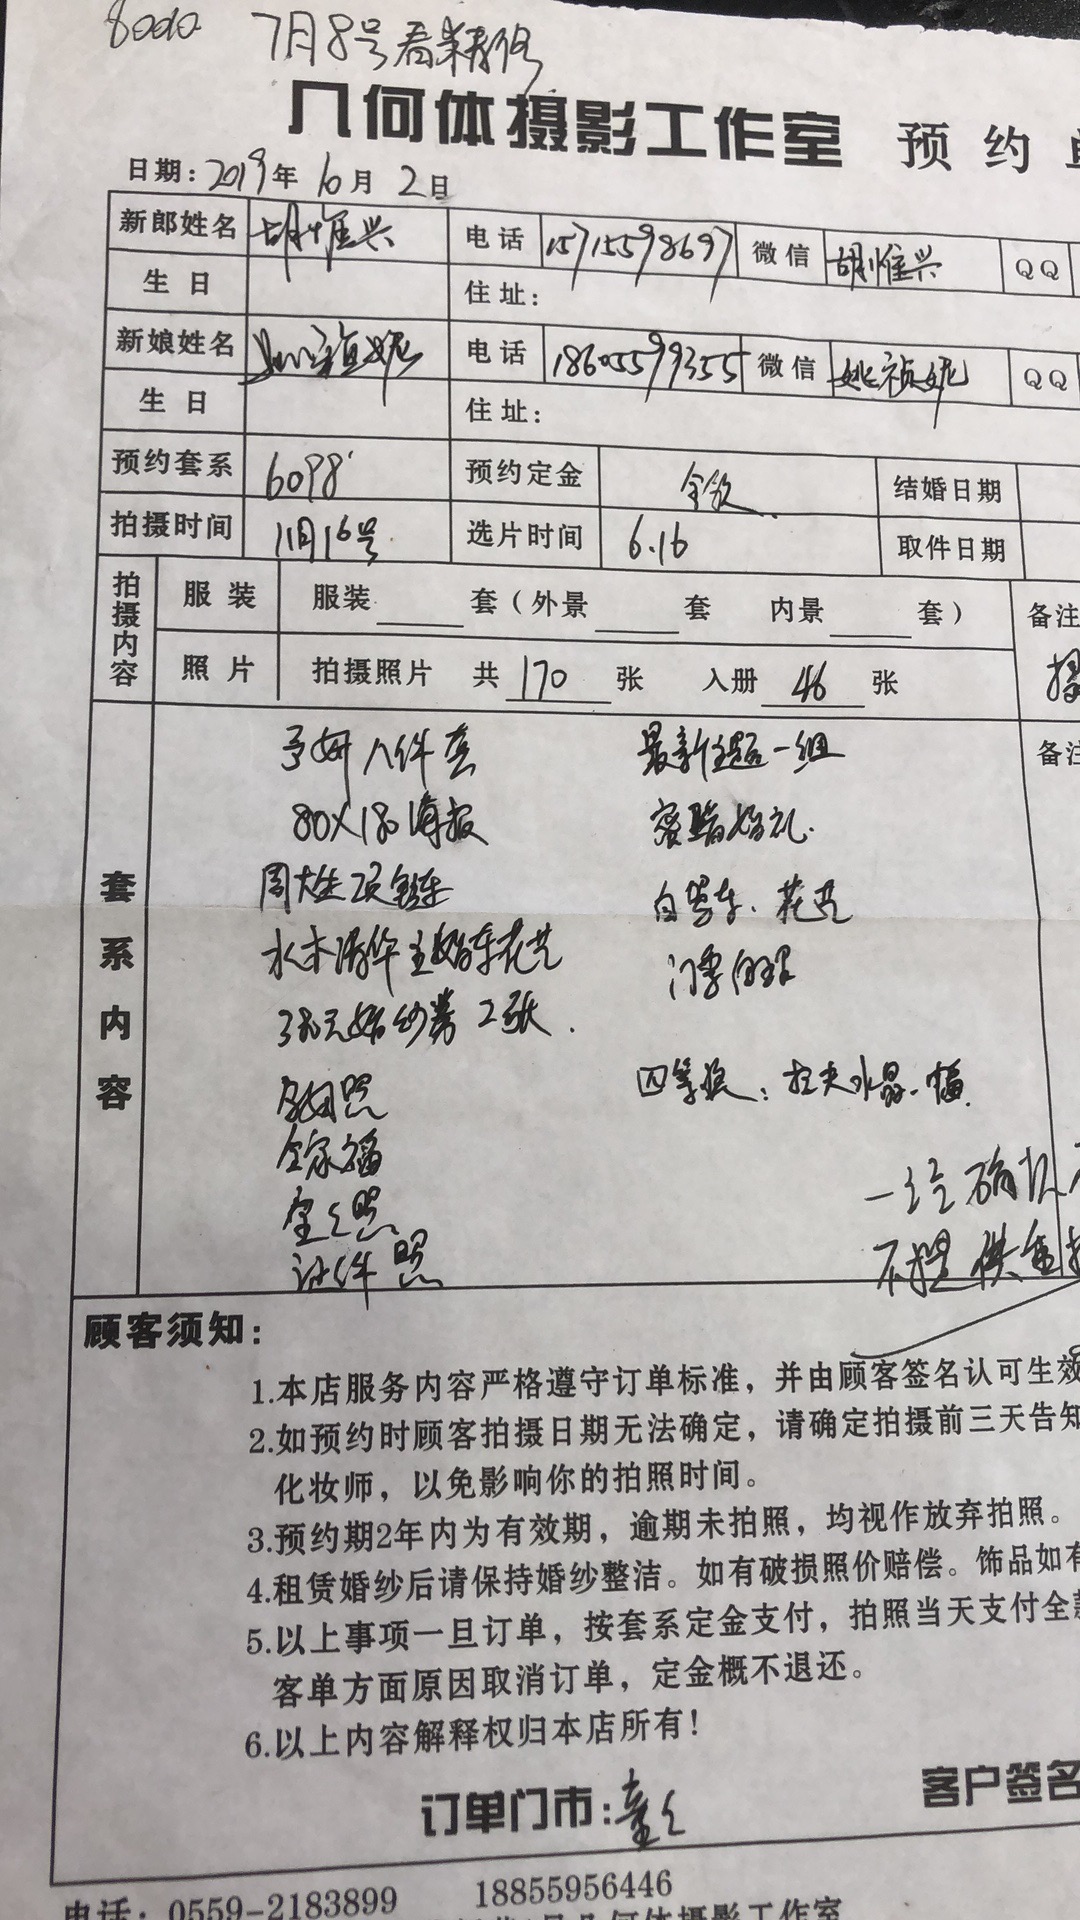 7月8号看精修
几何体摄影工作室 预约单
日期: 2019年 6月 2日
新郎姓名 胡惟兴 电话 15715598697 微信 胡惟兴 QQ
生日 住址:
新娘姓名 姚祯妮 电话 18605599355 微信 姚祯妮 QQ
生日 住址:
预约套系 6098 预约定金 全款 结婚日期
拍摄时间 选片时间 6.16 取件日期
拍摄内容 服装 服装 套(外景 套 内景 套) 备注
照片 拍摄照片 共 170 张 入册 46 张
套系内容 备注
八件套 最新主题一组
80X180海报
周大生项链
水木清华主婚车花艺 花艺
婚纱券 2张.
孕照 四等奖: 拉夫水晶一幅
全家福
宝宝照 一经确认
证件照 不提供
顾客须知:
1.本店服务内容严格遵守订单标准，并由顾客签名认可生效
2.如预约时顾客拍摄日期无法确定，请确定拍摄前三天告知
化妆师，以免影响你的拍照时间。
3.预约期2年内为有效期，逾期未拍照，均视作放弃拍照。
4.租赁婚纱后请保持婚纱整洁。如有破损照价赔偿。饰品如有
5.以上事项一旦订单，按套系定金支付，拍照当天支付全款
客单方面原因取消订单，定金概不退还。
6.以上内容解释权归本店所有!
订单门市: 客户签名
电话: 0559-2183899 18855956446
几何体摄影工作室